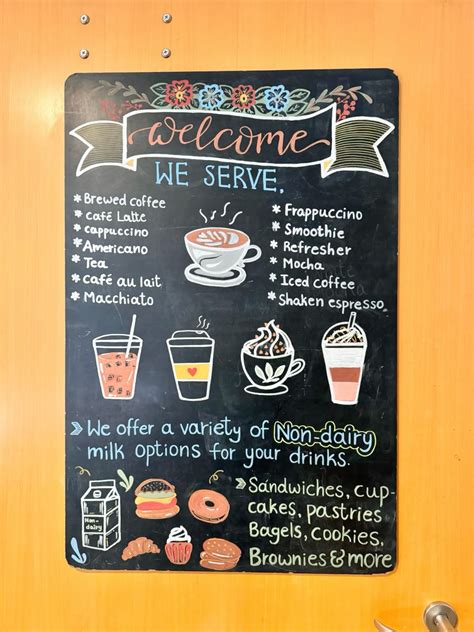 welcome
WE SERVE,
* Brewed coffee
* café Latte
* cappuccino
* Americano
* Tea
* café au lait
* Macchiato
* Frappuccino
* Smoothie
* Refresher
* Mocha
* Iced coffee
* Shaken espresso
» We offer a variety of Non-dairy
milk options for your drinks.
Non-
dairy
» Sandwiches, cup-
cakes, pastries
Bagels, cookies,
Brownies & more